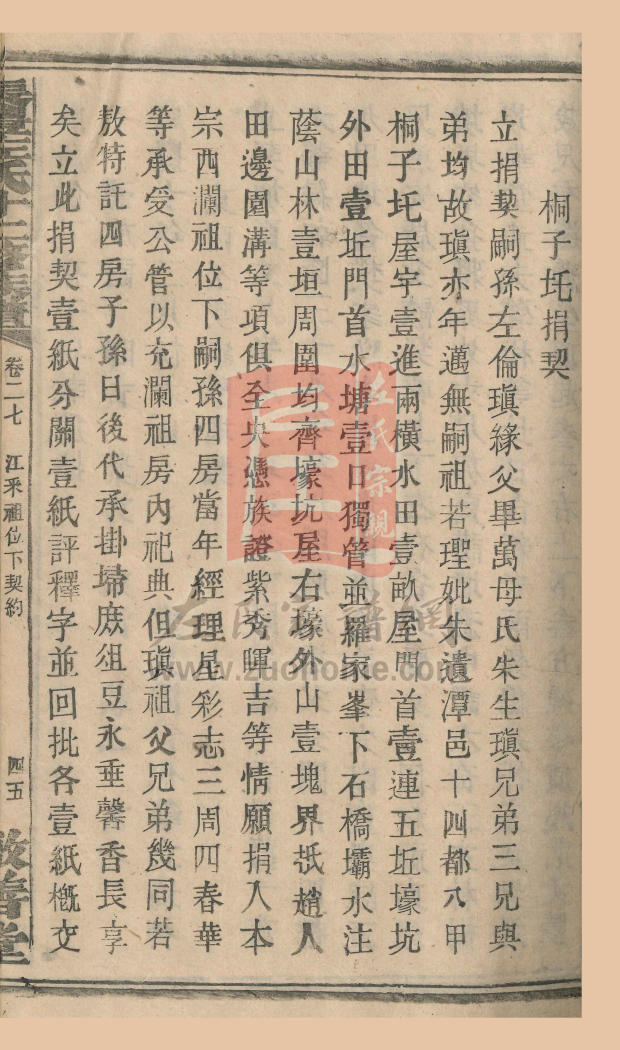 桐子坵捐契
立捐契嗣孫左倫瑱緣父畢萬母氏朱生瑱兄弟三兄與
弟均故瑱亦年邁無嗣祖若琞妣朱遺潭邑十四都八甲
桐子坵屋宇壹進兩橫水田壹畝屋門首壹連五坵壕坑
外田壹坵門首水塘壹口獨管並羅家峯下石橋壩水注
蔭山林壹垣周圍均齊壕坑屋右壕外山壹塊界抵趙人
田邊圍溝等項俱全央憑族證紫秀暉吉等情願捐入本
宗西瀾祖位下嗣孫四房當年經理星彩志三周四春華
等承受公管以充瀾祖房內祀典但瑱祖父兄弟幾同若
敖特託四房子孫日後代承掛埽庶俎豆永垂馨香長享
矣立此捐契壹紙分關壹紙評釋字並回批各壹紙槪交
卷二七
江釆祖位下契約
四五
敦善堂
左氏宗親
www.zuohome.com